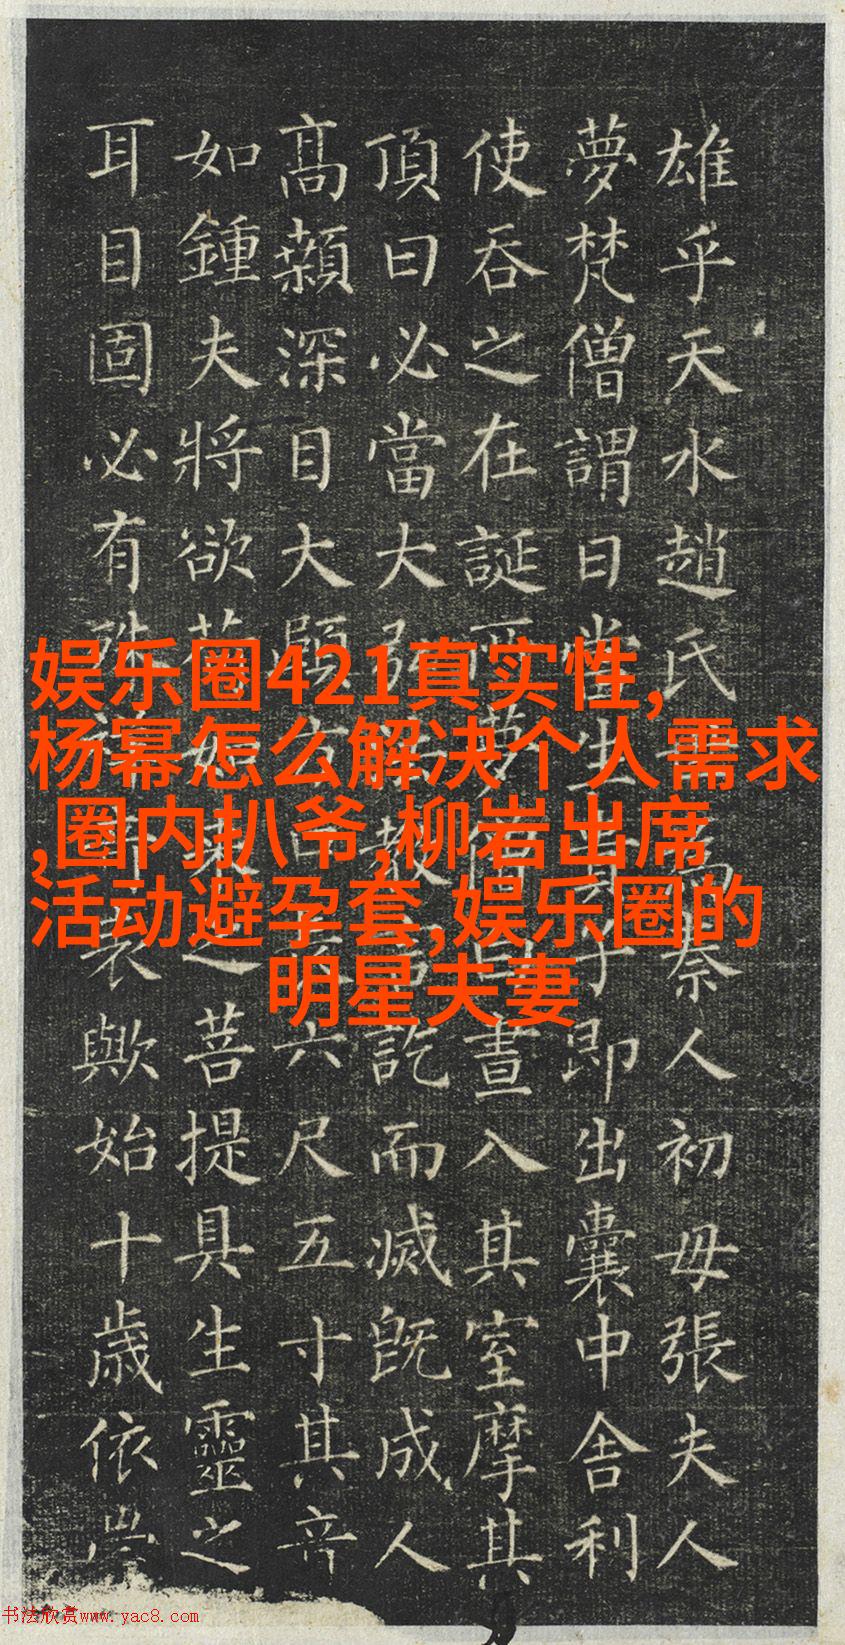 雄乎天水趙氏為秦人初母張夫人
夢梵僧謂曰當生貴子即出囊中舍利
使吞之在誕所夢僧白晝入其室摩其
頂曰必當大弘法教言訖而滅既成人
高顙深目大頤方口長六尺五寸其音
如鍾夫將欲荷如來之菩提具生靈之
耳目固必有殊祥奇表歟始十歲依
娱乐圈421真实性,
杨幂怎么解决个人需求
,圈内扒爷,柳岩出席
活动避孕套,娱乐圈的
明星夫妻
书法欣赏www.yac8.com